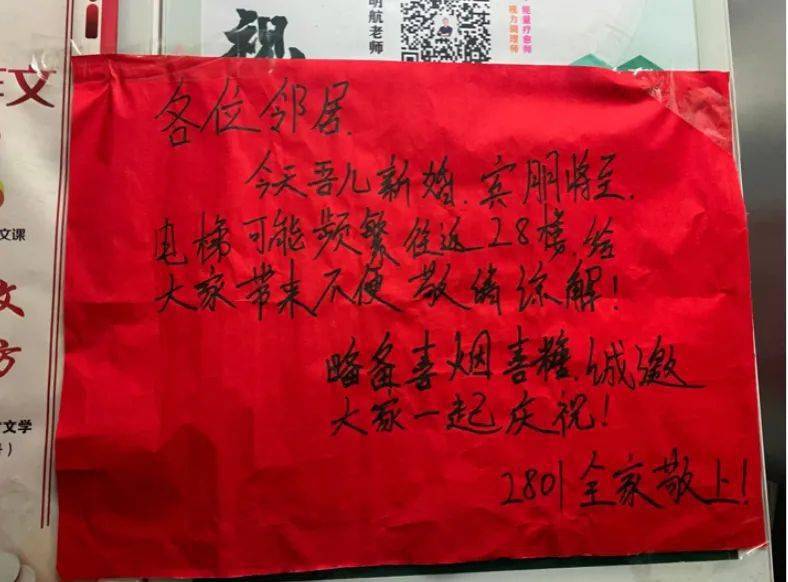 视
明航老师
能量疗愈师
视力调理师
文
文课
文
方
文学
各位邻居.
今天吾儿新婚.宾朋将至.
电梯可能频繁往返28楼,给
大家带来不便 敬请谅解!
略备喜烟喜糖,诚邀
大家一起庆祝!
2801全家敬上!